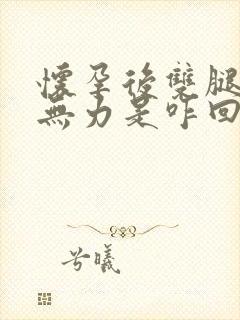 懷孕後雙腿
無力是咋回
兮曦